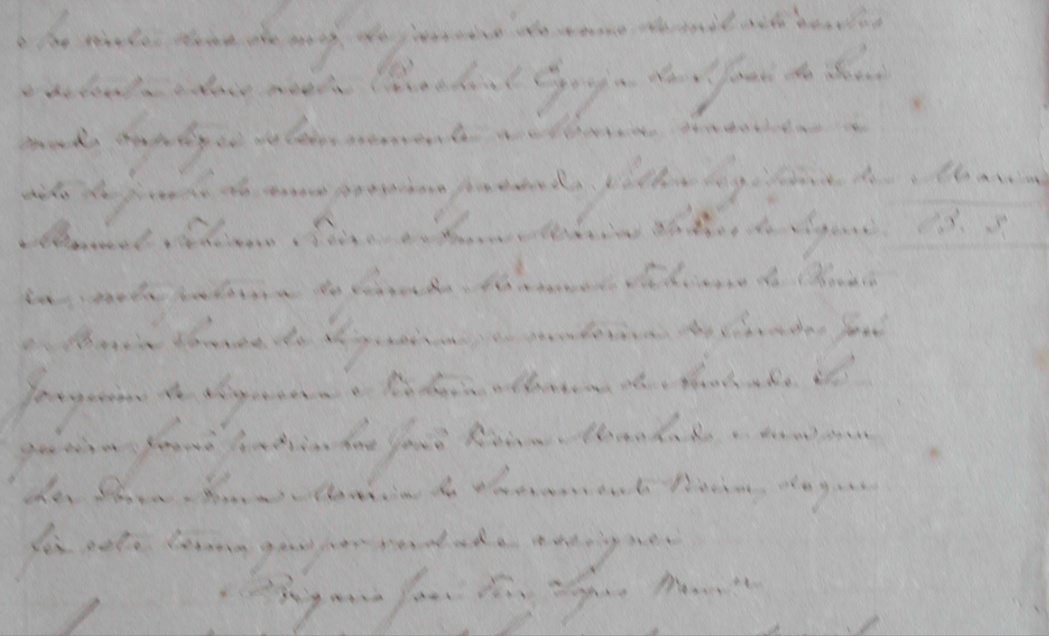 e dos vinte dias do mez de janeiro do anno de mil oito centos
e setenta e dois nesta Parochial Egreja de S. José do
baptizei solennemente a Maria nascida a
oito de junho do anno proximo passado filha legitima de
Maria
Manoel Fabiano Freire e Anna Maria de Siquei
ra, neta paterna do finado Manoel Fabiano de
e Maria de Siqueira, e materna dos finados José
Joaquim de Siqueira e Maria de Andrade Si
queira. Forão padrinhos João Vieira Machado, e sua mu
lher Dona Anna Maria do Sacramento Vieira, do que
fiz este termo, que por verdade assignei
O Vigario José Lopes